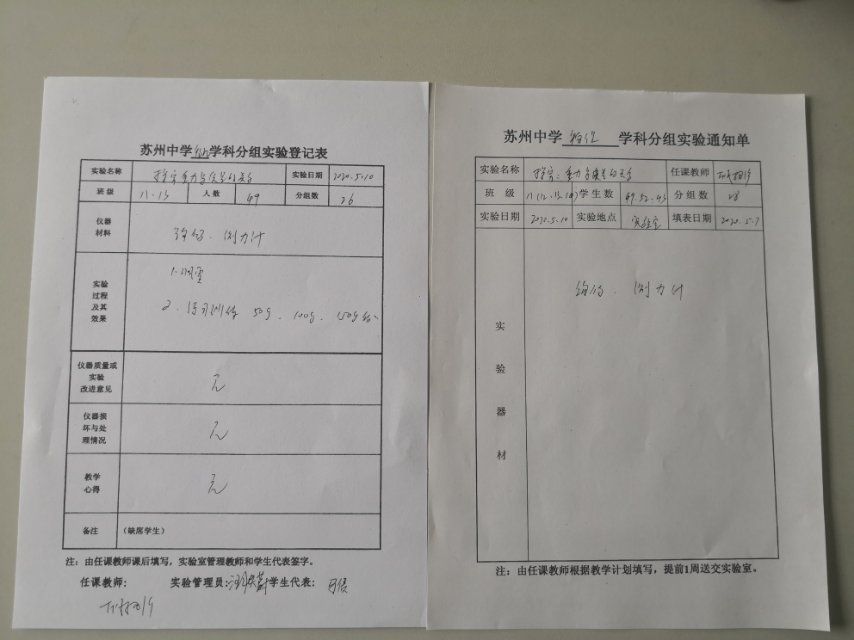 苏州中学物理学科分组实验登记表
实验名称 探究重力与质量的关系 实验日期 2020.5.10
班级 11.13 人数 49 分组数 26
仪器材料 钩码、测力计
实验过程及其效果 1. 调零
2. 50g、100g、150g
仪器质量或实验改进意见 无
仪器损坏与处理情况 无
教学心得 无
备注 (缺席学生)
注:由任课教师课后填写,实验室管理教师和学生代表签字。
任课教师: 实验管理员: 学生代表:
苏州中学 物理 学科分组实验通知单
实验名称 探究重力与质量的关系 任课教师
班级 学生数 49.52.45 分组数 28
实验日期 2020.5.10 实验地点 实验室 填表日期 2020.5.7
实验器材 钩码、测力计
注:由任课教师根据教学计划填写,提前1周送交实验室。